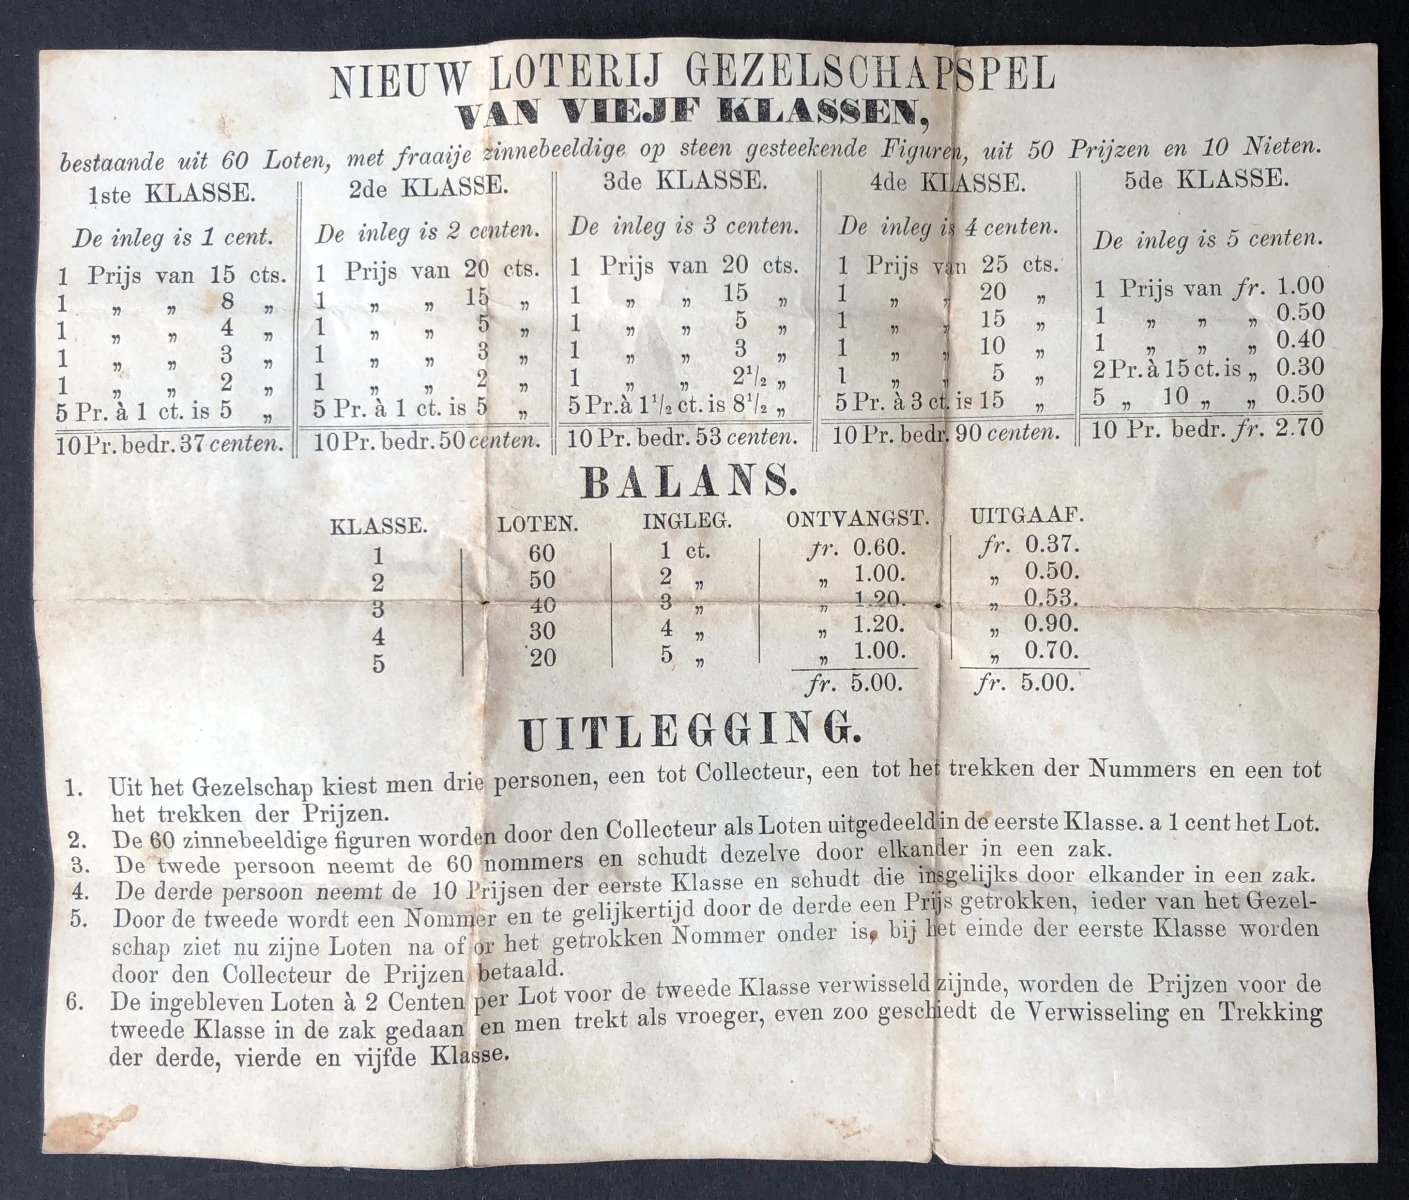 NIEUW LOTERIJ GEZELSCHAPSPEL
VAN VIEJF KLASSEN,
bestaande uit 60 Loten, met fraaije zinnebeeldige op steen gesteekende Figuren, uit 50 Prijzen en 10 Nieten.
1ste KLASSE.
De inleg is 1 cent.
1 Prijs van 15 cts.
1 „ „ 8 „
1 „ „ 4 „
1 „ „ 3 „
1 „ „ 2 „
5 Pr. à 1 ct. is 5 „
10 Pr. bedr. 37 centen.
2de KLASSE.
De inleg is 2 centen.
1 Prijs van 20 cts.
1 „ „ 15 „
1 „ „ 5 „
1 „ „ 3 „
1 „ „ 2 „
5 Pr. à 1 ct. is 5 „
10 Pr. bedr. 50 centen.
3de KLASSE.
De inleg is 3 centen.
1 Prijs van 20 cts.
1 „ „ 15 „
1 „ „ 5 „
1 „ „ 3 „
1 „ „ 2½ „
5 Pr. à 1½ ct. is 8½ „
10 Pr. bedr. 53 centen.
4de KLASSE.
De inleg is 4 centen.
1 Prijs van 25 cts.
1 „ „ 20 „
1 „ „ 15 „
1 „ „ 10 „
1 „ „ 5 „
5 Pr. à 3 ct. is 15 „
10 Pr. bedr. 90 centen.
5de KLASSE.
De inleg is 5 centen.
1 Prijs van fr. 1.00
1 „ „ „ 0.50
1 „ „ „ 0.40
2 Pr. à 15 ct. is „ 0.30
5 „ 10 „ „ 0.50
10 Pr. bedr. fr. 2.70
BALANS.
KLASSE. LOTEN. INGLEG. ONTVANGST. UITGAAF.
1 60 1 ct. fr. 0.60. fr. 0.37.
2 50 2 „ „ 1.00. „ 0.50.
3 40 3 „ „ 1.20. „ 0.53.
4 30 4 „ „ 1.20. „ 0.90.
5 20 5 „ „ 1.00. „ 0.70.
fr. 5.00. fr. 5.00.
UITLEGGING.
1. Uit het Gezelschap kiest men drie personen, een tot Collecteur, een tot het trekken der Nummers en een tot
het trekken der Prijzen.
2. De 60 zinnebeeldige figuren worden door den Collecteur als Loten uitgedeeld in de eerste Klasse. a 1 cent het Lot.
3. De twede persoon neemt de 60 nommers en schudt dezelve door elkander in een zak.
4. De derde persoon neemt de 10 Prijsen der eerste Klasse en schudt die insgelijks door elkander in een zak.
5. Door de tweede wordt een Nommer en te gelijkertijd door de derde een Prijs getrokken, ieder van het Gezel-
schap ziet nu zijne Loten na of or het getrokken Nommer onder is, bij het einde der eerste Klasse worden
door den Collecteur de Prijzen betaald.
6. De ingebleven Loten à 2 Centen per Lot voor de tweede Klasse verwisseld zijnde, worden de Prijzen voor de
tweede Klasse in de zak gedaan en men trekt als vroeger, even zoo geschiedt de Verwisseling en Trekking
der derde, vierde en vijfde Klasse.